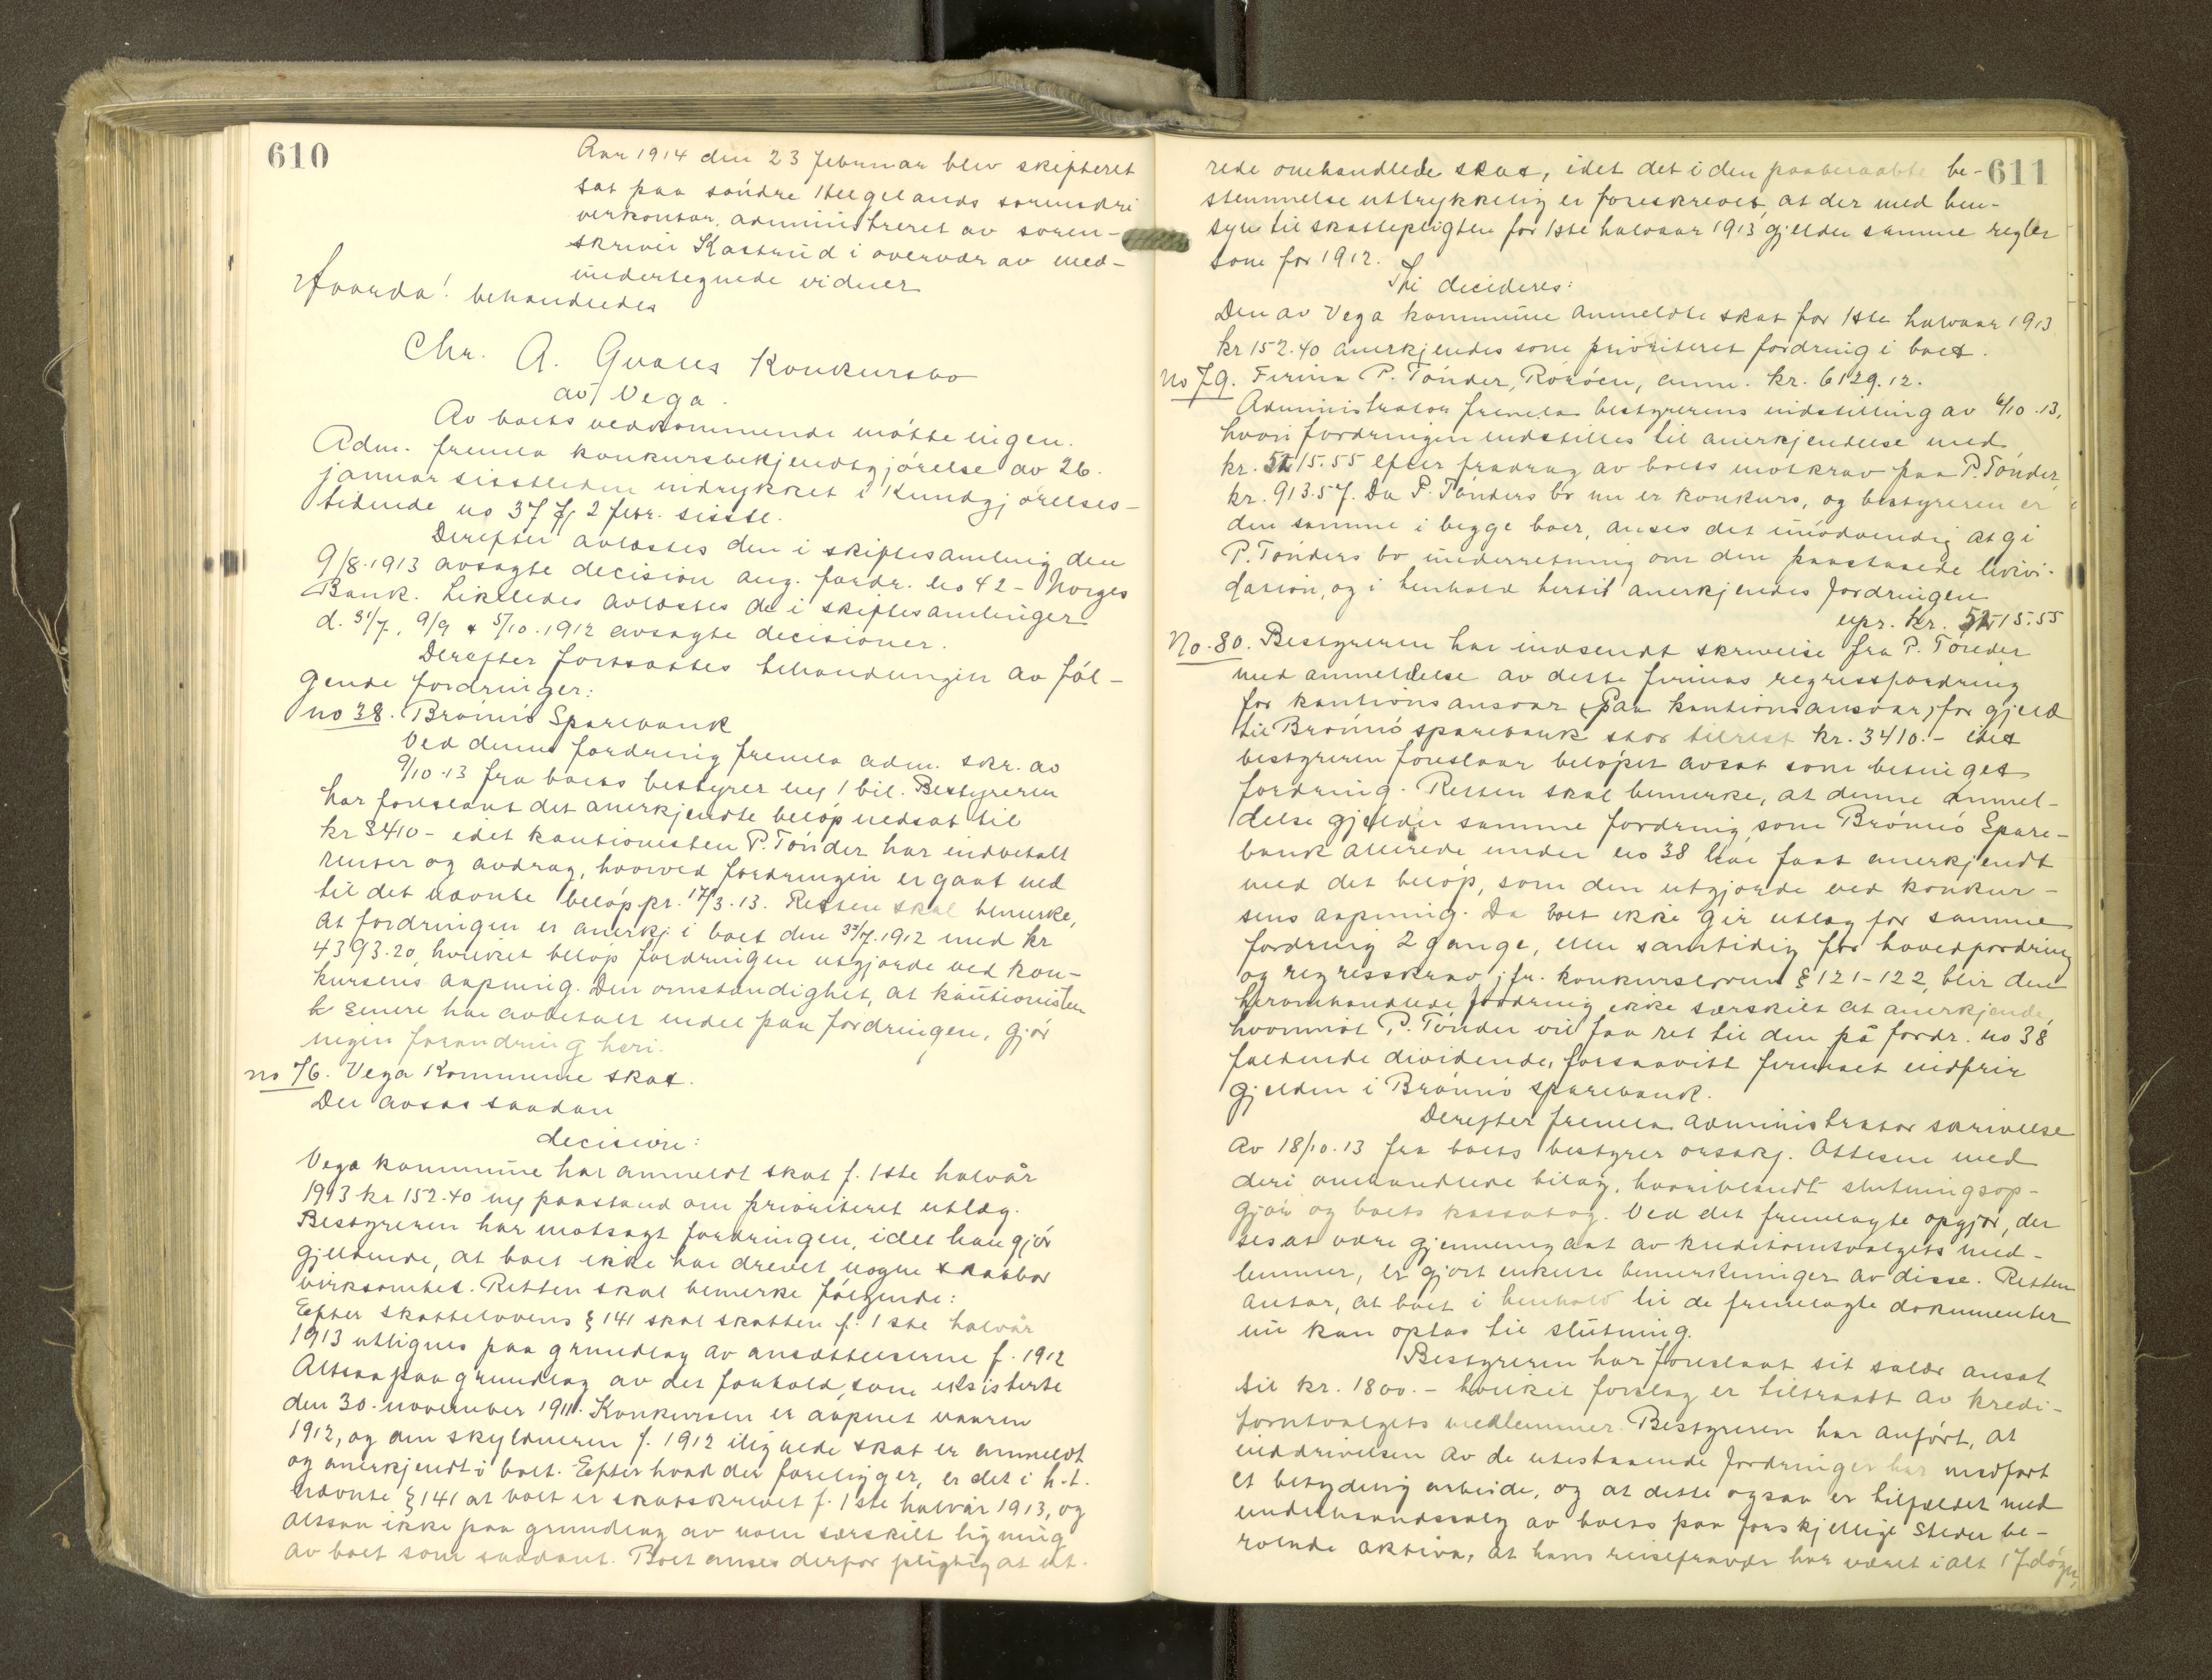 610
Aar 1914 den 23 februar blev skifteret
sat paa søndre Helgelands sorenskri
verkontor, administreret av soren-
skriver Kastrud i overvær av med-
undertegnede vidner
Hvorda! behandledes
Chr. A. Gvales Konkursbo
av Vega.
Av boets vedkommende møtte ingen.
Adm. fremla konkursbekjendtgjørelse av 26.
januar sisstleden indrykket i Kundgjørelses-
tidende no 37 2 febr. sisstl.
Derefter avlæstes den i skiftesamling den
9/8.1913 avsagte decision ang. fordr. no 42 - Norges
Bank. Likeledes avlæstes de i skiftesamlinger
d. 31/7, 9/9 & 5/10.1912 avsagte decisioner.
Derefter fortsattes behandlingen av føl-
gende fordringer:
no 38. Brønnø Sparebank
Ved denne fordring fremla adm. skr. av
9/10.13 fra boets bestyrer m/ 1 bil. Bestyreren
har foreslaat det anerkjendte beløp nedsat til
kr 3410 - idet kautionisten P. Tønder har indbetalt
renter og avdrag, hvorved fordringen er gaat ned
til det nævnte beløp pr. 17/3.13. Retten skal bemerke,
at fordringen er anerkj. i boet den 31/7.1912 med kr
4393.20, hvilket beløp fordringen utgjorde ved kon-
kursens aapning. Den omstændighet, at kautionisten
senere har avbetalt endel paa fordringen, gjør
ingen forandring heri.
no 76. Vega Kommune skat.
Der avsas saadan
decision:
Vega kommune har anmeldt skat f. 1ste halvår
1913 kr 152.40 m/ paastand om prioriteret utlæg.
Bestyreren har motsagt fordringen, idet han gjør
gjeldende, at boet ikke har drevet nogen skatbar
virksomhet. Retten skal bemerke følgende:
Efter skattelovens § 141 skal skatten f. 1ste halvår
1913 utlignes paa grundlag av ansættelserne f. 1912
Altsaa paa grundlag av det forhold, som eksisterte
den 30. november 1911. Konkursen er aapnet vaaren
1912, og den skyldneren f. 1912 ilignede skat er anmeldt
og anerkjendt i boet. Efter hvad der foreligger, er det i h.t.
nævnte § 141 at boet er skatskrevet f. 1ste halvår 1913, og
altsaa ikke paa grundlag av noen særskilt ligning
av boet som saadant. Boet anses derfor pligtig at ut-
611
rede omhandlede skat, idet det i den paaberaabte be-
stemmelse uttrykkelig er foreskrevet, at der med hen-
syn til skattepligten for 1ste halvaar 1913 gjelder samme regler
som for 1912.
Thi decideres:
Den av Vega kommune anmeldte skat for 1ste halvaar 1913
kr 152.40 anerkjendes som prioriteret fordring i boet.
No 79. Firma P. Tønder, Rørøen, anm. kr. 6129.12.
Administrator fremla bestyrerens indstilling av 6/10.13,
hvori fordringen indstilles til anerkjendelse med
kr. 5215.55 efter fradrag av boets motkrav paa P. Tønder,
kr. 913.57. Da P. Tønders bo nu er konkurs, og bestyreren er
den samme i begge boer, anses det unødvendig at gi
P. Tønders bo underretning om den paastaaede likvi-
dation, og i henhold hertil anerkjendes fordringen
upr. kr. 5215.55
No. 80. Bestyreren har indsendt skrivelse fra P. Tønder
med anmeldelse av dette firmas regressfordring
for kautionsansvar (paa kautionsansvar) for gjeld
til Brønnø sparebank stor tilrest kr. 3410.- idet
bestyreren foreslaar beløpet avsat som betinget
fordring. Retten skal bemerke, at denne anmel-
delse gjelder samme fordring, som Brønnø Spare-
bank allerede under no 38 har faat anerkjendt
med det beløp, som den utgjorde ved konkur-
sens aapning. Da boet ikke gir utlæg for samme
fordring 2 gange, eller samtidig for hovedfordring
og regresskrav, jfr. konkurslovens § 121-122, blir den
heromhandlede fordring ikke særskilt at anerkjende,
hvorimot P. Tønder vil faa ret til den på fordr. no 38
faldende dividende, forsaavitt firmaet indfrir
gjelden i Brønnø sparebank.
Derefter fremla administrator skrivelse
av 18/10.13 fra boets bestyrer overskj. Attesen med
deri omhandlede bilag, hvoriblandt slutningsop-
gjør og boets kassabog. Ved det fremlagte opgjør, der
sesat være gjennemgaat av kreditorutvalgets med-
lemmer, er gjort enkelte bemerkninger av disse. Retten
antar, at boet i henhold til de fremlagte dokumenter
nu kan optas til slutning.
Bestyreren har foreslaat sit salær ansat
til kr. 1800.- hvilket forslag er tiltraadt av kredi-
torutvalgets medlemmer. Bestyreren har anført, at
inddrivelsen av de utestaaende fordringer har medført
et betydelig arbeide, og at dette ogsaa er tilfældet med
underhaandssalg av boets paa forskjellige steder be-
roende aktiva, at hans reisefravær har været i alt 17 døgn,